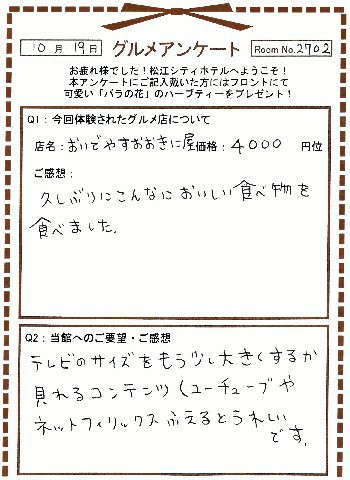 10月19日 グルメアンケート Room No.2702
お疲れ様でした！松江シティホテルへようこそ！
本アンケートにご記入戴いた方にはフロントにて
可愛い「バラの花」のハーブティーをプレゼント！
Q1：今回体験されたグルメ店について
店名：おいでやすおおきに屋 価格：4000 円位
ご感想：
久しぶりにこんなにおいしい食べ物を
食べました。
Q2：当館へのご要望・ご感想
テレビのサイズをもう少し大きくするか
見れるコンテンツ（ユーチューブや
ネットフィリックスふえるとうれしい
です。